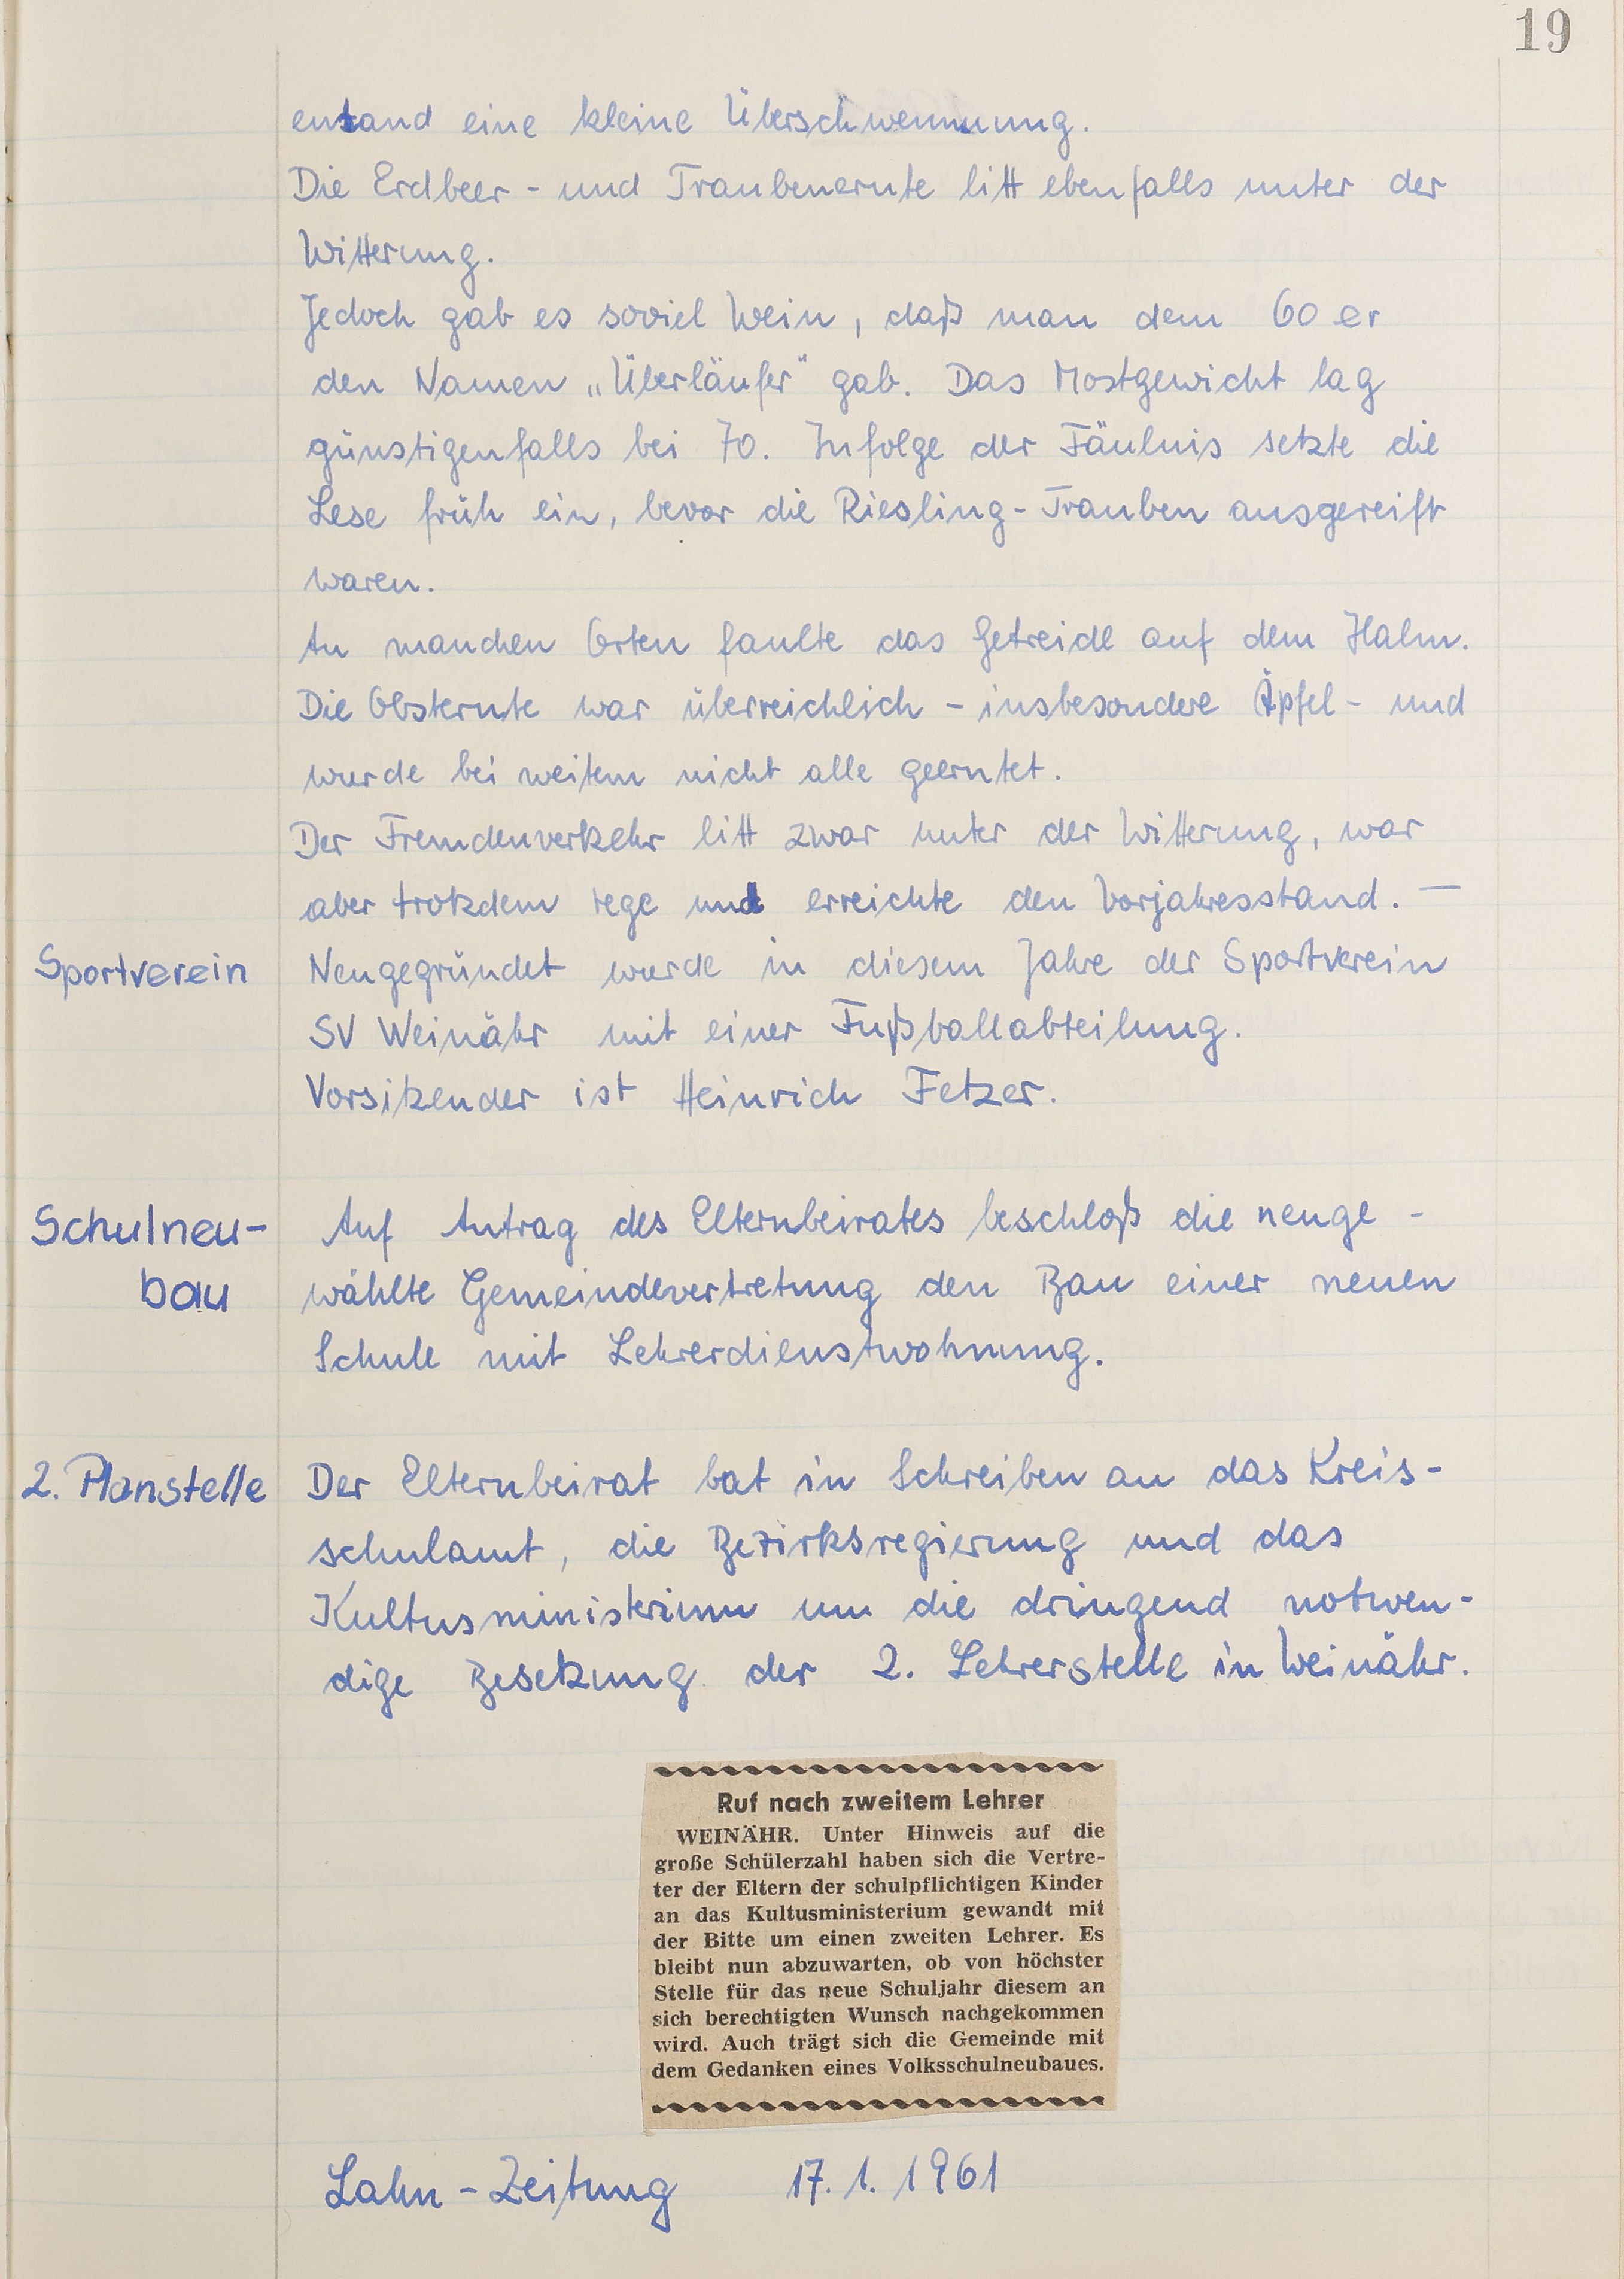 19
enstand eine kleine Überschwemmung.
Die Erdbeer- und Traubenernte litt ebenfalls unter der
Witterung.
Jedoch gab es soviel Wein, daß man dem 60er
den Namen „Überläufer" gab. Das Mostgewicht lag
günstigenfalls bei 70. Infolge der Fäulnis setzte die
Lese früh ein, bevor die Riesling-Trauben ausgereift
waren.
An manchen Orten faulte das Getreide auf dem Halm.
Die Obsternte war überreichlich - insbesondere Äpfel - und
wurde bei weitem nicht alle geerntet.
Der Fremdenverkehr litt zwar unter der Witterung, war
aber trotzdem rege und erreichte den Vorjahresstand. —
Sportverein Neugegründet wurde in diesem Jahre der Sportverein
SV Weinähr mit einer Fußballabteilung.
Vorsitzender ist Heinrich Fetzer.
Schulneu- Auf Antrag des Elternbeirates beschloß die neuge-
bau wählte Gemeindevertretung den Bau einer neuen
Schule mit Lehrerdienstwohnung.
2. Planstelle Der Elternbeirat bat in Schreiben an das Kreis-
schulamt, die Bezirksregierung und das
Kultusministerium um die dringend notwen-
dige Besetzung der 2. Lehrerstelle in Weinähr.
Ruf nach zweitem Lehrer
WEINÄHR. Unter Hinweis auf die
große Schülerzahl haben sich die Vertre-
ter der Eltern der schulpflichtigen Kinder
an das Kultusministerium gewandt mit
der Bitte um einen zweiten Lehrer. Es
bleibt nun abzuwarten, ob von höchster
Stelle für das neue Schuljahr diesem an
sich berechtigten Wunsch nachgekommen
wird. Auch trägt sich die Gemeinde mit
dem Gedanken eines Volksschulneubaues.
Lahn-Zeitung 17.1.1961